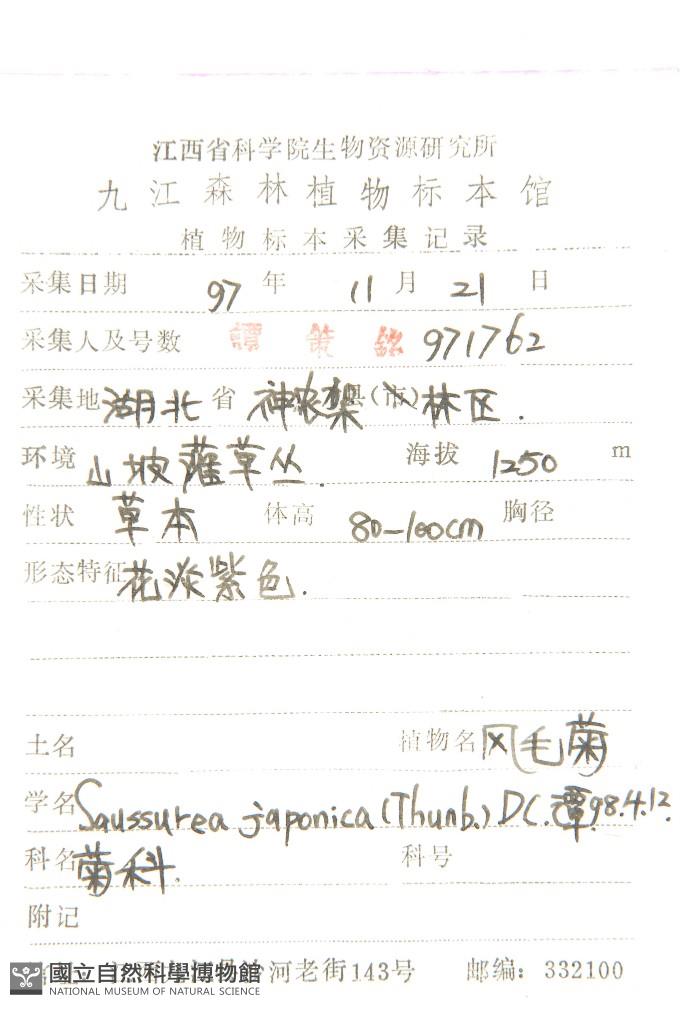 江西省科学院生物资源研究所
九江森林植物标本馆
植物标本采集记录
采集日期 97 年 11 月 21 日
采集人及号数 譚策銘 971762
采集地 湖北 省 神农架 县(市) 林区.
环境 山坡灌草丛. 海拔 1250 m
性状 草本 体高 80-100cm 胸径
形态特征 花淡紫色.
土名 植物名 风毛菊
学名 Saussurea japonica (Thunb.) DC. 譚 98.4.12.
科名 菊科. 科号
附记
河老街143号 邮编: 332100
國立自然科學博物館
NATIONAL MUSEUM OF NATURAL SCIENCE